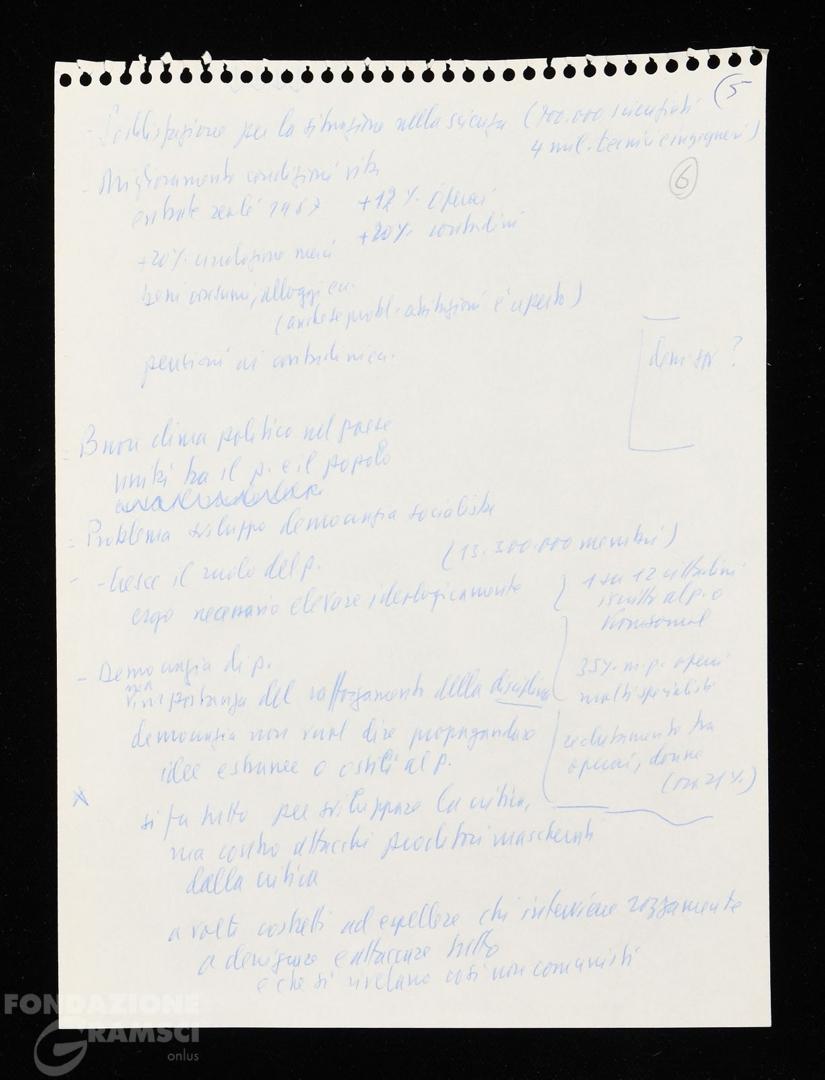 5
- Soddisfazione per la situazione nella scienza (900.000 scienziati
4 mil. tecnici e ingegneri)
6
- Miglioramento condizioni vita
entrate reali 1967 +12% operai
+20% contadini
+20% circolazione merci
beni consumi, alloggi ecc.
(anche se probl. abitazioni è aperto)
pensioni ai contadini ecc.
?
- Buon clima politico nel paese
unità tra il p. e il popolo
- Problema sviluppo democrazia socialista
- Cresce il ruolo del p. (13.300.000 membri)
ergo necessario elevare ideologicamente
1 su 12 cittadini
iscritto al p. o
Komsomol
35% m.p. operai
molti specialisti
reclutamento tra
operai, donne
(ora 21%)
- Democrazia di p.
importanza del rafforzamento della disciplina
democrazia non vuol dire propagandare
idee estranee o ostili al p.
si fa tutto per sviluppare la critica,
ma contro attacchi proditori mascherati
dalla critica
a volte costretti ad espellere chi interviene rozzamente
a denigrare e attaccare tutto
e che si rivelano così non comunisti
FONDAZIONE
GRAMSCI
onlus